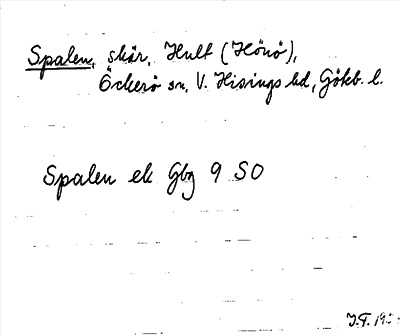 Spalen, skär, Hult (Hönö),
Öckerö sn, V. Hisings hd, Götb. l.
Spalen ek Gbg 9 SO